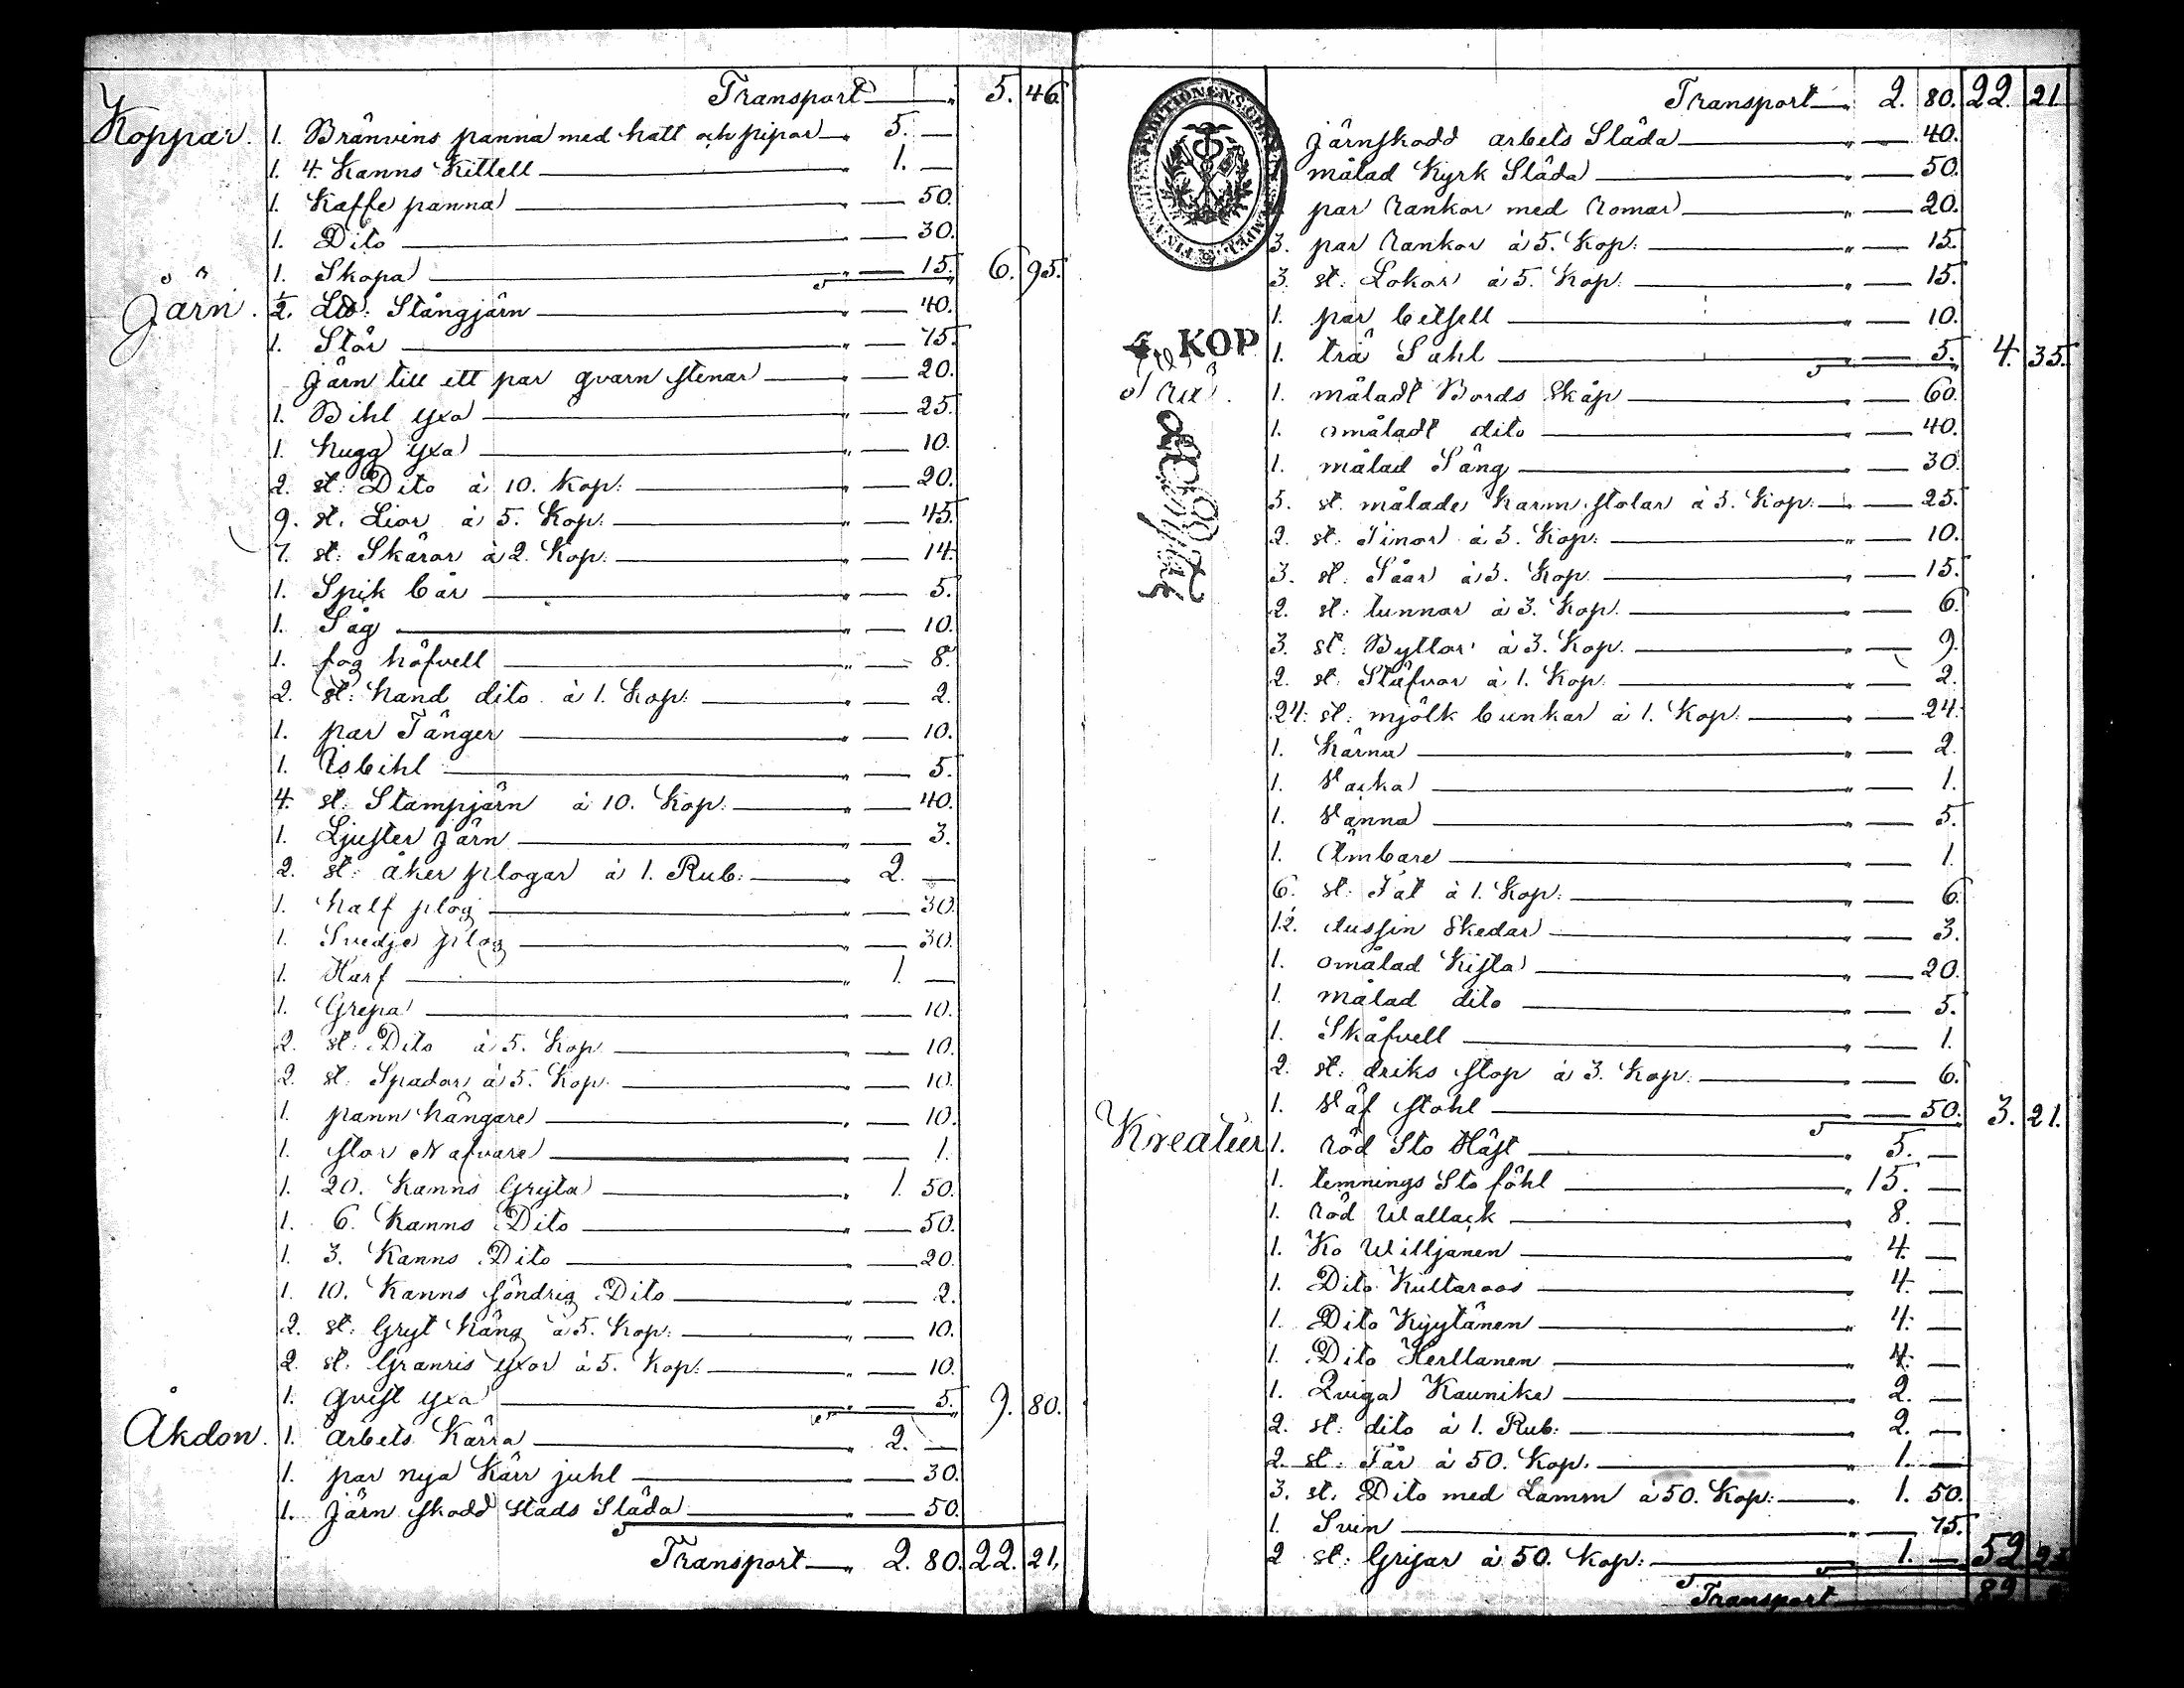 Transport 5. 46.
Koppar. 1. Bränvins panna med hatt och pipor 5. —
1. 4. Kanns Kittell 1. —
1. Kaffe panna — 50.
1. Dito — 30.
1. Skopa — 15. 6. 95.
Järn. ½. L℔: Stångjärn — 40.
1. Stör — 75.
Järn till ett par qvarn stenar — 20.
1. Bihl yxa — 25.
1. hugg yxa — 10.
2. st: Dito à 10. Kop: — 20.
9. st. Lior à 5. Kop: — 45.
7. st: Skäror à 2. Kop: — 14.
1. Spik bår — 5.
1. Såg — 10.
1. fog höfvell — 8.
2. st: hand dito à 1. Kop: — 2.
1. par Tänger — 10.
1. Isbihl — 5.
4. st: Stampjärn à 10. Kop: — 40.
1. Ljuster Järn — 3.
2. st: åker plogar à 1. Rub: 2. —
1. half plog — 30.
1. Svedje plog — 30.
1. Harf 1. —
1. Grepa — 10.
2. st: Dito à 5. Kop — 10.
2. st: Spador à 5. Kop. — 10.
1. pann hängare — 10.
1. stor Nafvare — 1.
1. 20. Kanns Gryta 1. 50.
1. 6. Kanns Dito — 50.
1. 3. Kanns Dito — 20.
1. 10. Kanns söndrig Dito — 2.
2. st: Gryt häng à 5. Kop: — 10.
2. st: Granris yxor à 5. Kop: — 10.
1. qvist yxa — 5. 9. 80.
Åkdon. 1. arbets Kärra 2. —
1. par nya Kärr juhl — 30.
1. Järn skodd stads Släda — 50.
Transport 2. 80. 22. 21.
Transport 2. 80. 22. 21
järnskodd arbets Släda — 40.
1. målad Kyrk Släda — 50.
par Rankor med Romar — 20.
3. par Rankor à 5. Kop: — 15.
3. st: Lokor à 5. Kop. — 15.
1. par betsell — 10.
KOP
1. trä Sahl — 5. 4. 35.
1. måladt Bords skåp — 60.
1. omåladt dito — 40.
1. målad Säng — 30.
5. st. målade Karm stolar à 5. Kop: — 25.
2. st: Tinor à 5. Kop: — 10.
3. st. Såar à 5. Kop. — 15.
2. st: tunnor à 3. Kop. — 6.
3. st: Byttor à 3. Kop. — 9.
2. st: Stäfvor à 1. Kop — 2.
24. st: mjölk bunkar à 1. Kop: — 24.
1. Kärna — 2.
1. — 1.
1. — 5.
1. Ämbare — 1.
6. st: Fat à 1. Kop: — 6.
12. dussin Skedar — 3.
1. omålad Kista — 20.
1. målad dito — 5.
1. Skäfvell — 1.
2. st: driks stop à 3. Kop: — 6.
1. Väf stohl — 50. 3. 21.
Kreatur 1. röd Sto Häst 5. —
1. temnings Sto föhl 15. —
1. röd Wallack 8. —
1. Ko Willjänen 4. —
1. Dito Kultaroos 4. —
1. Dito Kyytänen 4. —
1. Dito Herttanen 4. —
1. Qviga Kaunike 2. —
2. st: dito à 1. Rub: 2. —
2. st: Får à 50. Kop. 1. —
3. st. Dito med Lamm à 50. Kop: 1. 50.
1. Svin — 75.
2 st: Grisar à 50. Kop: 1. — 52
Transport 82